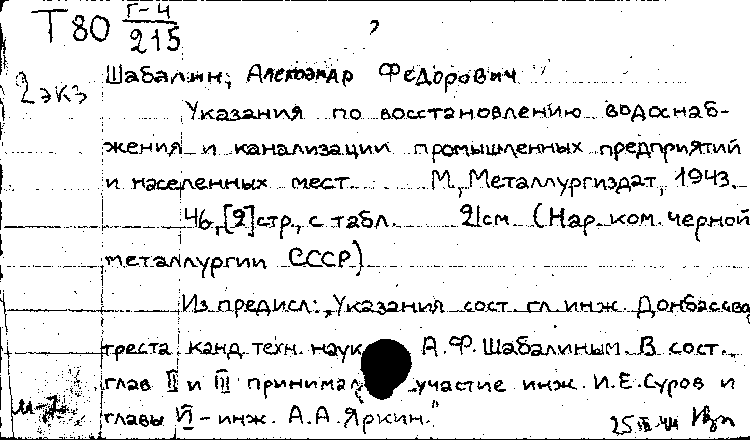 Т80 Г-4
215
2 экз
Шабалин, Александр Федорович
Указания по восстановлению водоснаб-
жения и канализации промышленных предприятий
и населенных мест. М., Металлургиздат, 1943.
46, [2] стр., с табл. 21см. (Нар. ком. черной
металлургии СССР)
Из предисл.: "Указания сост. гл. инж. Донбассво
треста канд. техн. наук А.Ф. Шабалиным. В сост.
глав II и III принимал участие инж. И.Е. Суров и
главы VI - инж. А.А. Яркин."